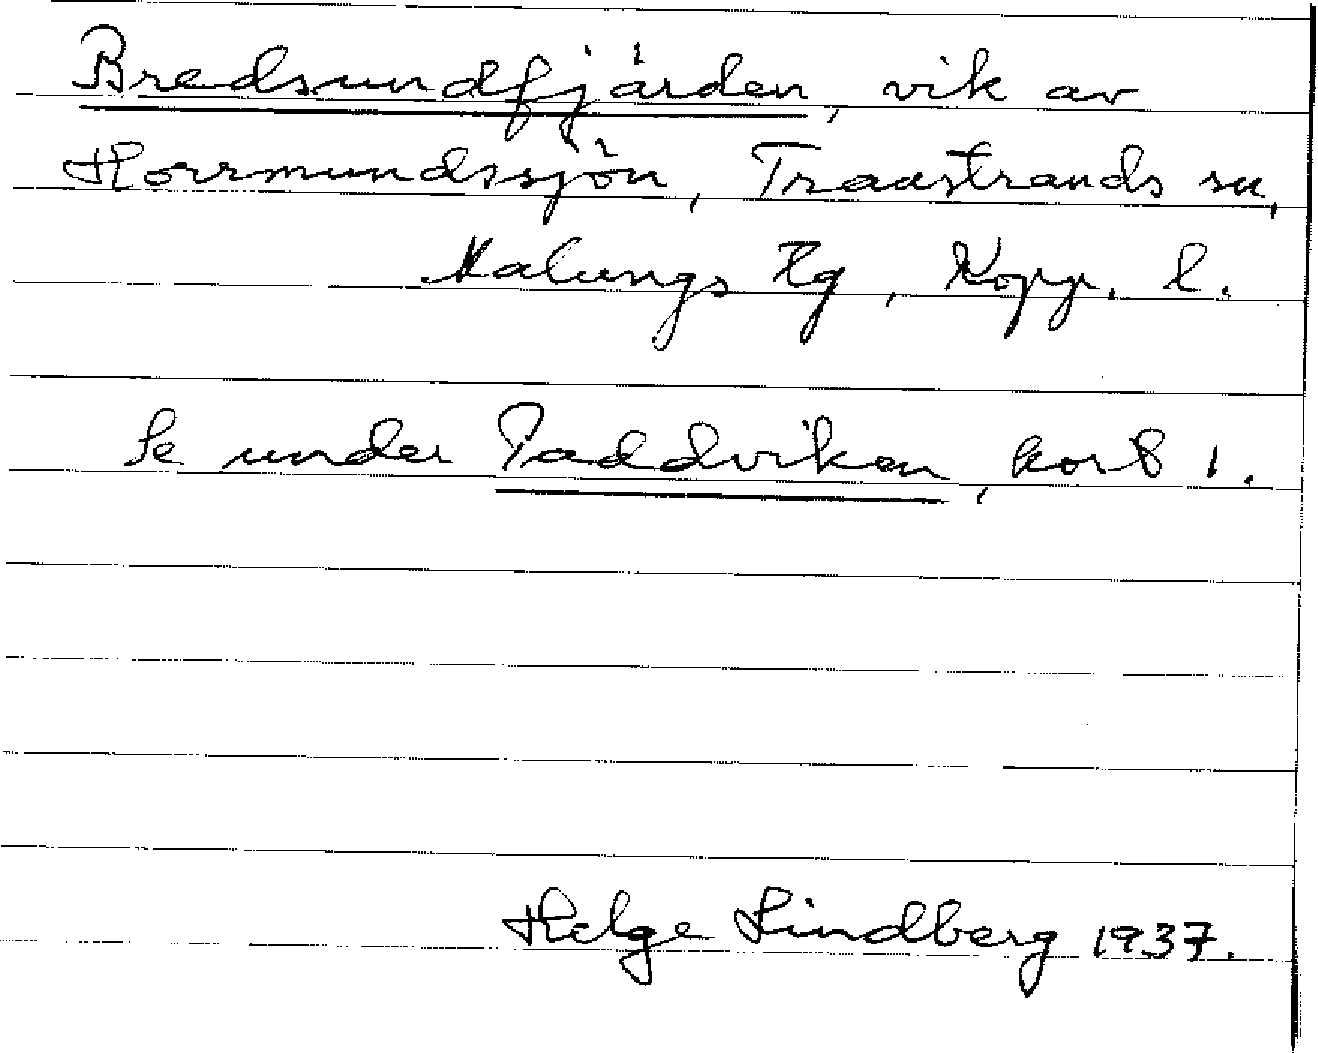 Bredsundfjärden, vik av
Horrmundssjön, Transtrands sn,
Malungs tg, Kopp. l.
Se under Paddviken, kort 1.
Helge Lindberg 1937.